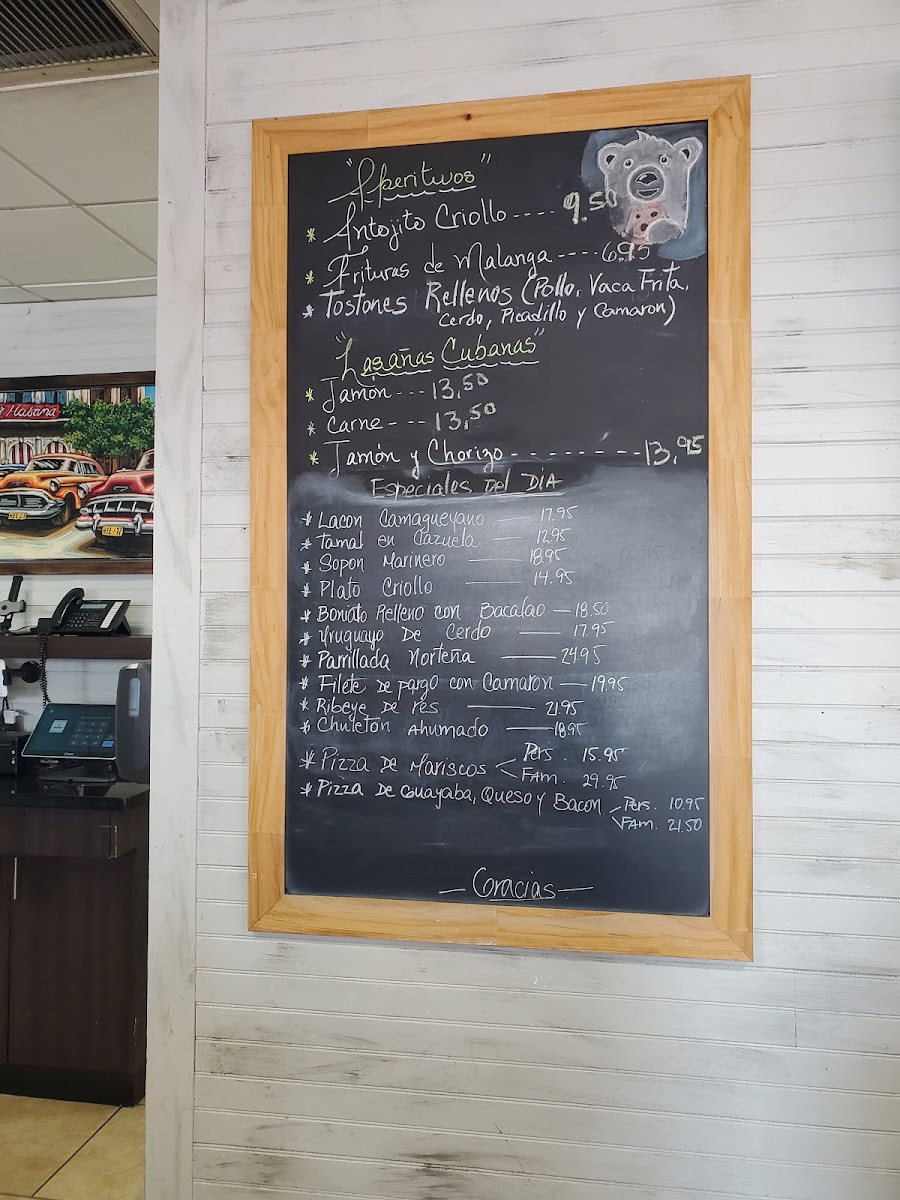 "Aperitivos"
* Antojito Criollo ---- 9.50
* Frituras de Malanga ----- 6.95
* Tostones Rellenos (Pollo, Vaca Frita,
Cerdo, Picadillo y Camaron)
"Lasañas Cubanas"
* Jamón --- 13,50
* Carne --- 13,50
* Jamón y Chorizo - - - - - - - - - 13,95
Especiales Del DIA
* Lacon Camagueyano — 17.95
* Tamal en Cazuela — 12.95
* Sopon Marinero — 18.95
* Plato Criollo — 14.95
* Boniato Relleno con Bacalao — 18.50
* Uruguayo De Cerdo — 17.95
* Parrillada Norteña — 24.95
* Filete de pargo con Camaron — 19.95
* Ribeye De res — 21.95
* Chuleton Ahumado — 18.95
* Pizza De Mariscos < Pers. 15.95
FAM. 29.95
* Pizza De Guayaba, Queso y Bacon < Pers. 10.95
FAM. 21.50
— Gracias —
Habana